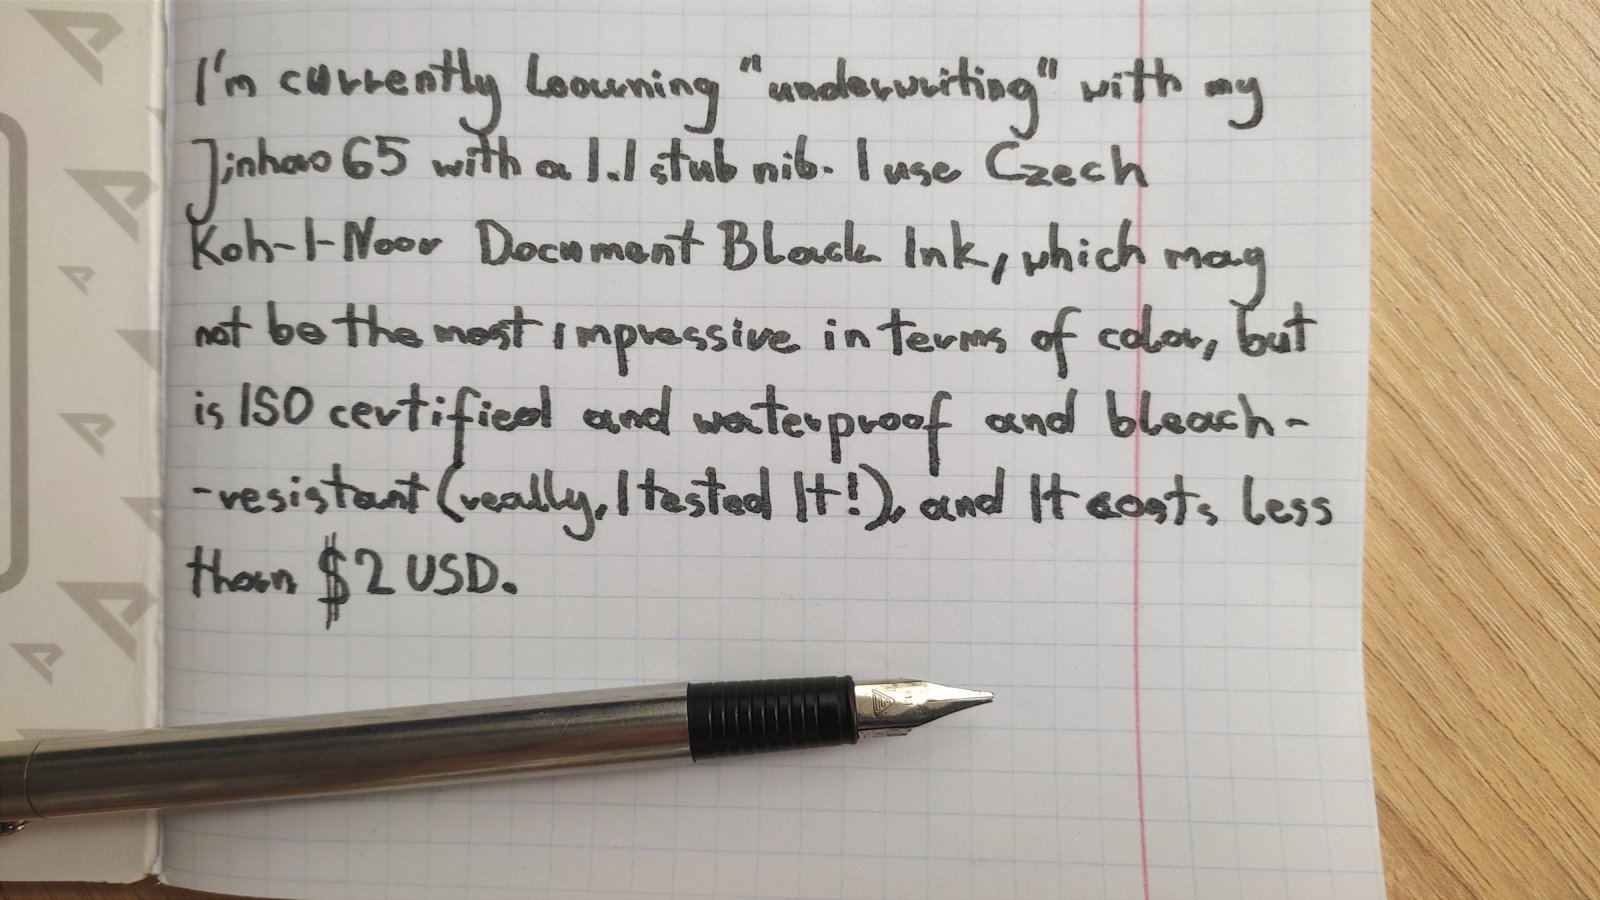 I'm currently learning "underwriting" with my
Jinhao 65 with a 1.1 stub nib. I use Czech
Koh-I-Noor Document Black Ink, which may
not be the most impressive in terms of color, but
is ISO certified and waterproof and bleach-
-resistant (really, I tested It!), and It costs less
than $2 USD.